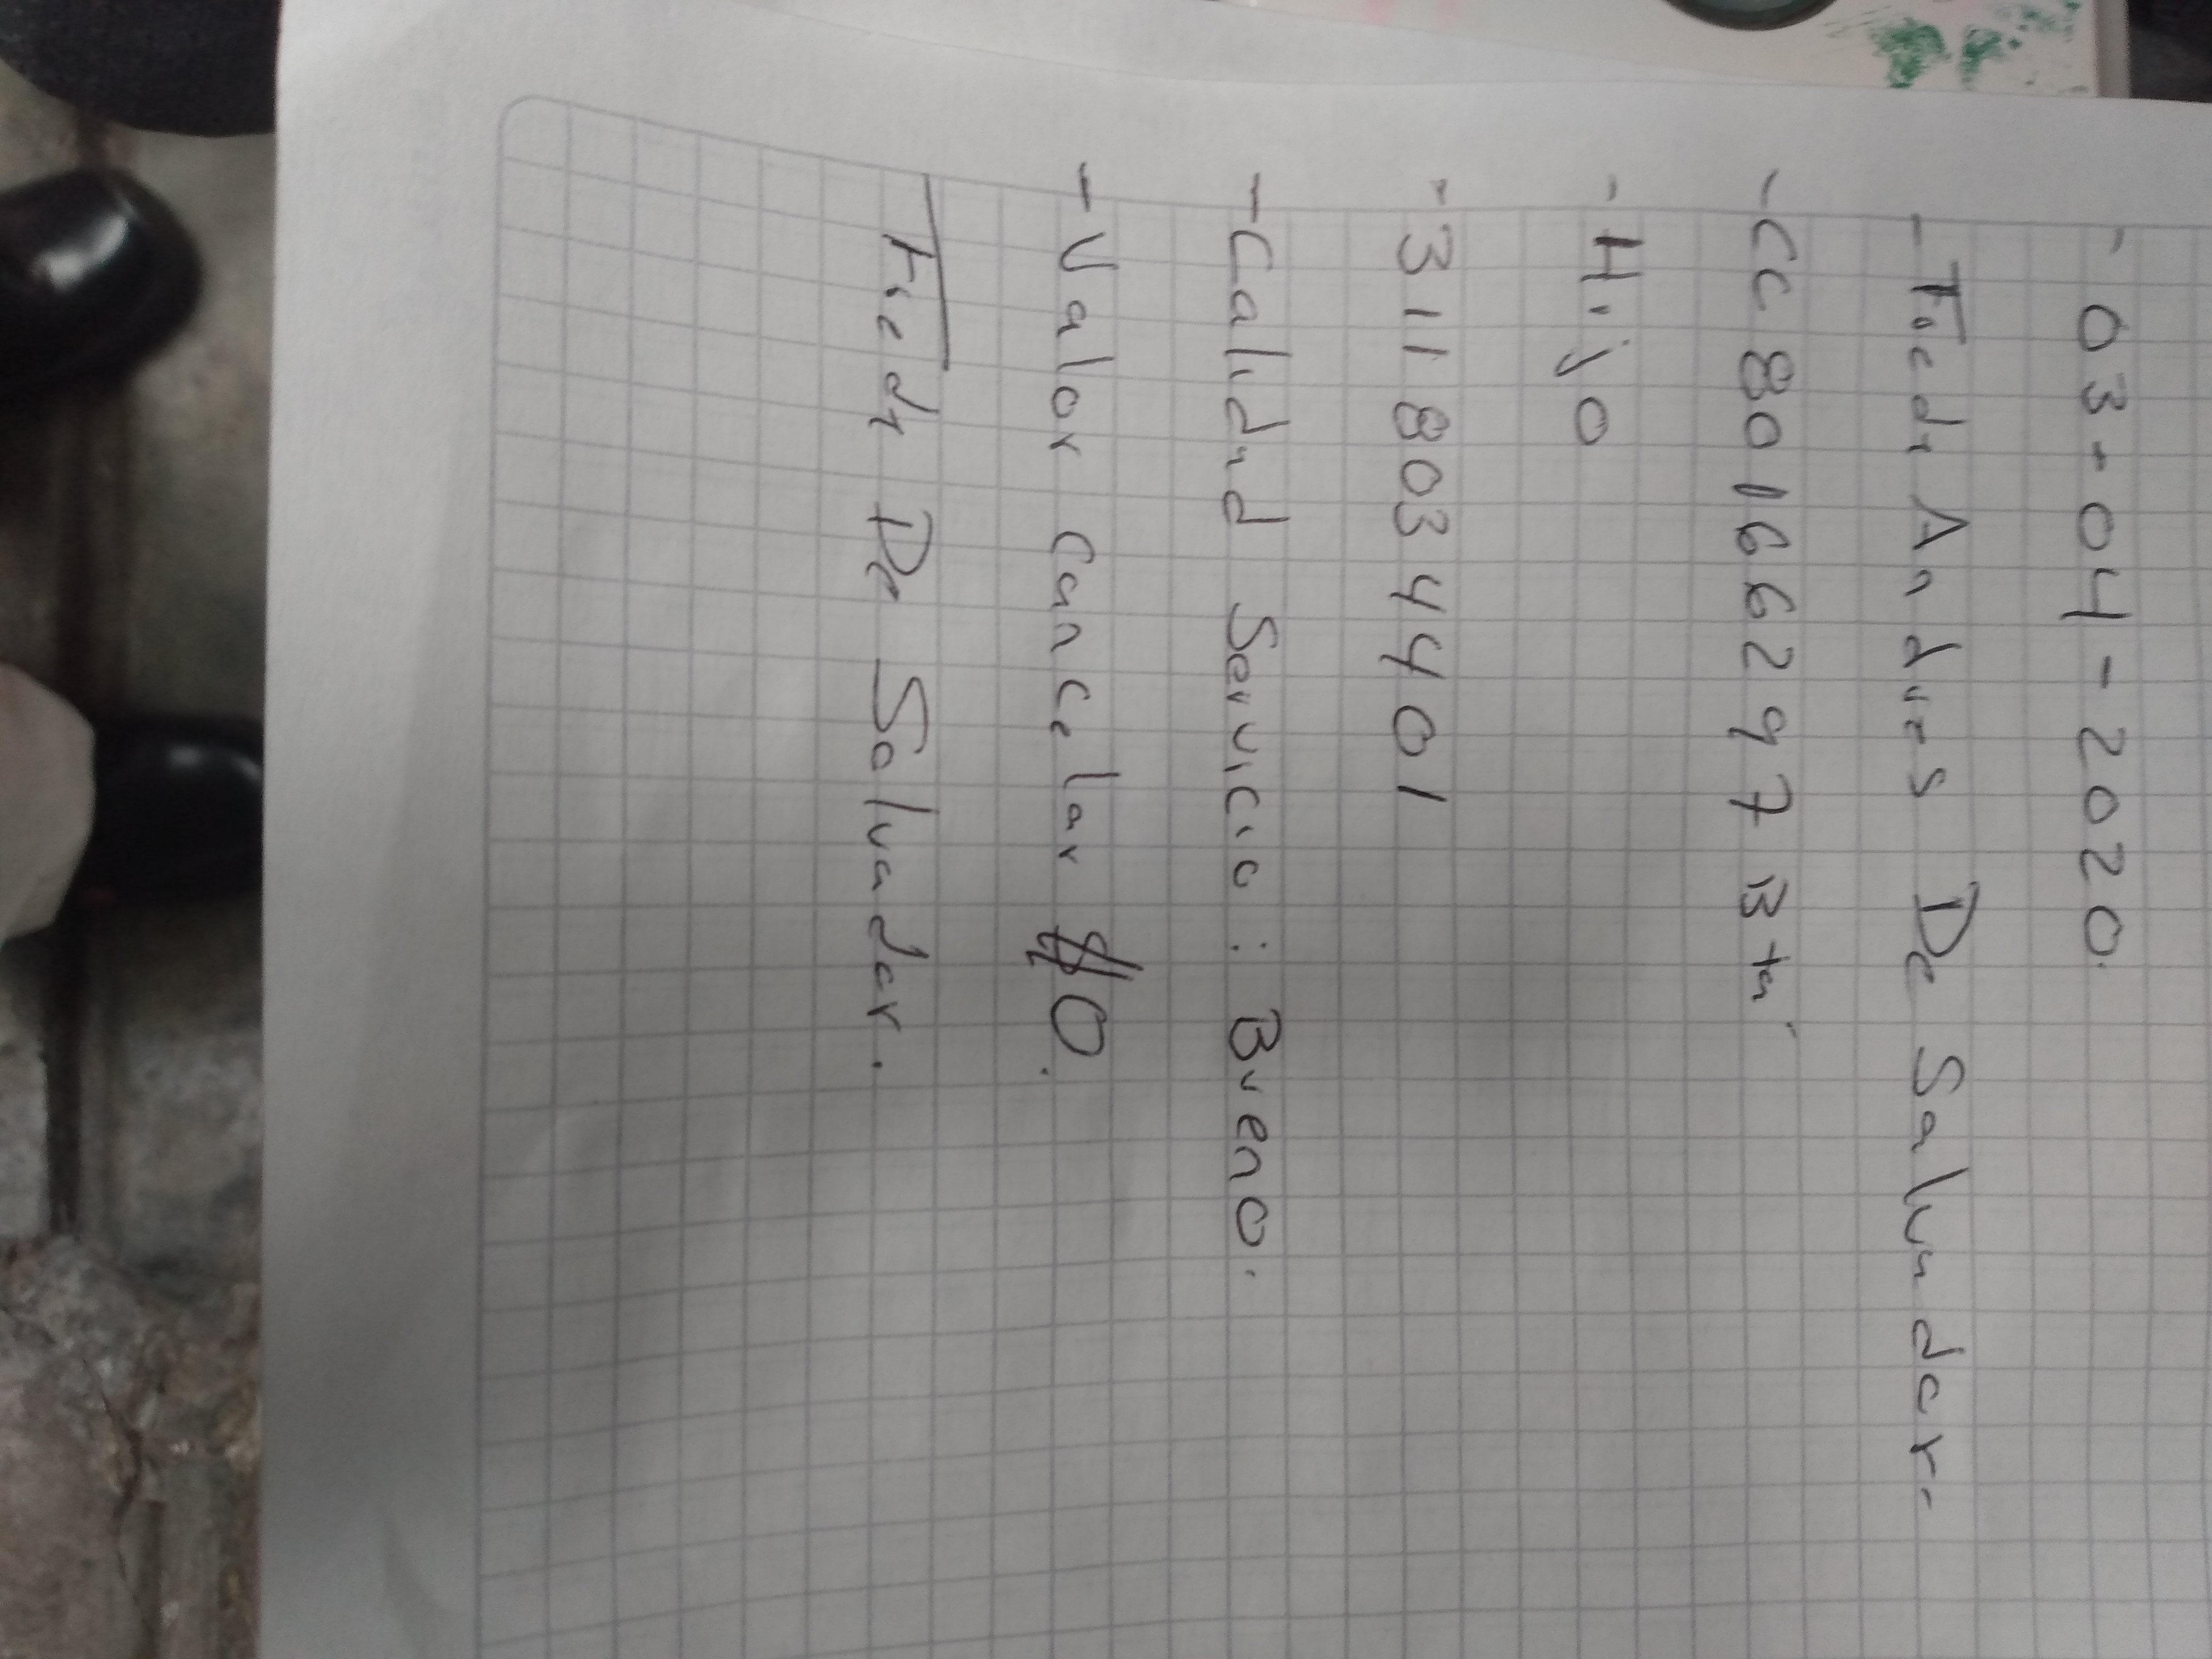 - 03-04-2020.
- Fredy Andres De Salvador.
- CC 80166297 Bta
- Hijo
- 3118034401
- Calidad Servicio: Bueno.
- Valor Cancelar $0.
Fredy De Salvador.